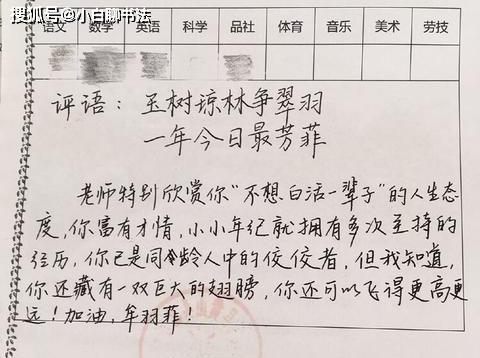 搜狐号@小白聊书法
语文 数学 英语 科学 品社 体育 音乐 美术 劳技
评语：玉树琼林争翠羽
一年今日最芳菲
老师特别欣赏你“不想白活一辈子”的人生态
度，你富有才情，小小年纪就拥有多次主持的
经历，你已是同龄人中的佼佼者，但我知道，
你还藏有一双巨大的翅膀，你还可以飞得更高更
远！加油，牟羽菲！